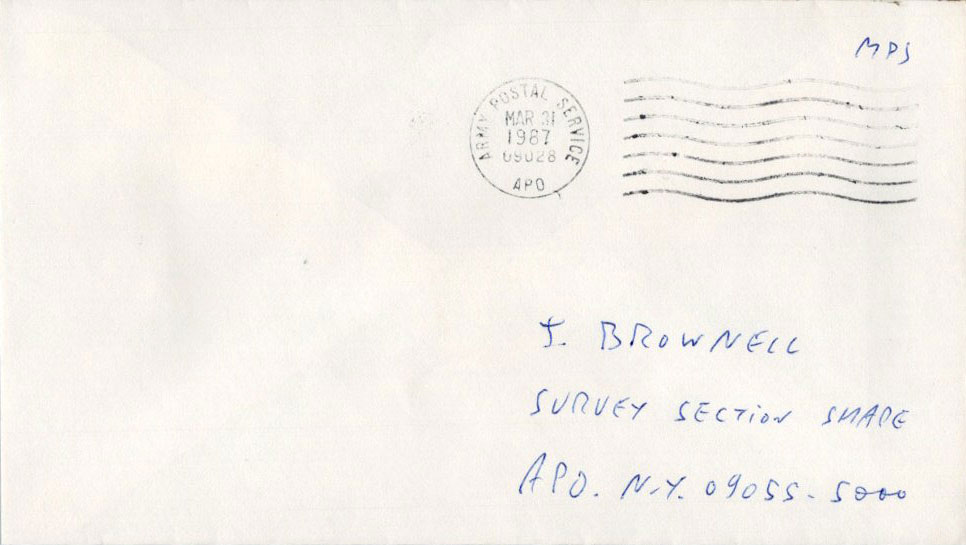 MPS
ARMY POSTAL SERVICE
MAR 31
1987
09028
APO
J. BROWNELL
SURVEY SECTION SHAPE
APO. N.Y. 09055-5000